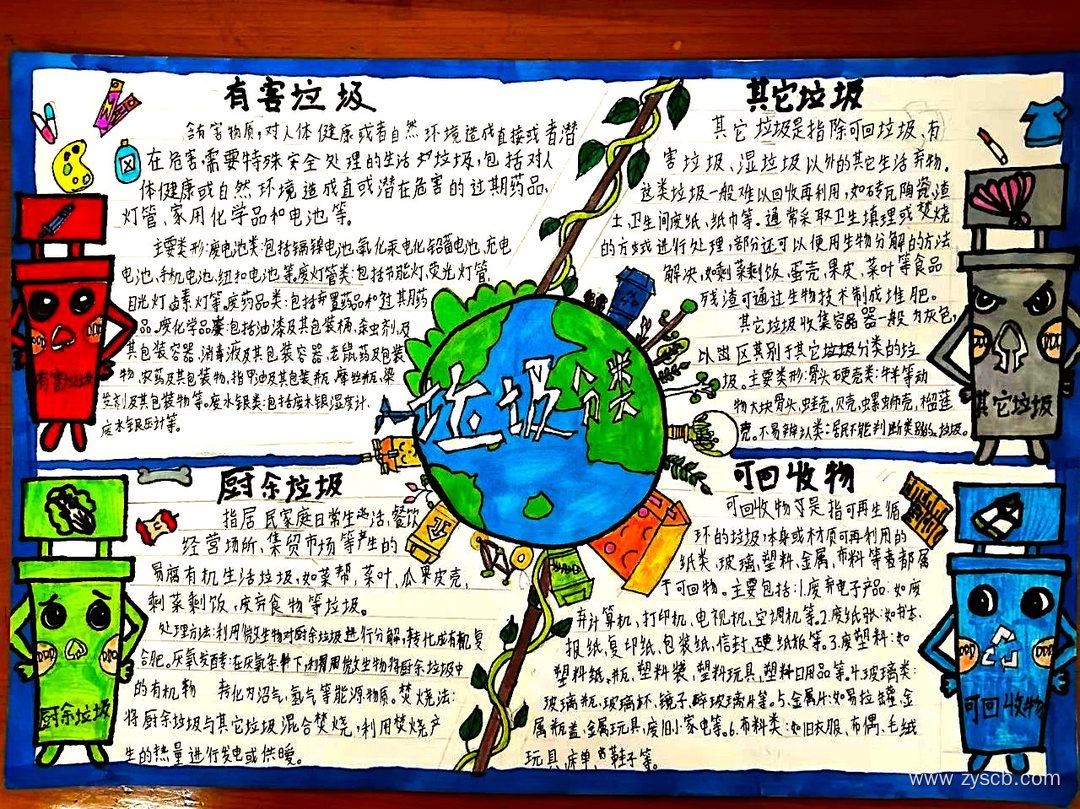 有害垃圾
含有害物质,对人体健康或者自然环境造成直接或者潜
在危害需要特殊安全处理的生活垃圾,包括对人
体健康或自然环境造成直或潜在危害的过期药品,
灯管、家用化学品和电池等。
主要类形:废电池类:包括镉镍电池,氧化汞电池铅蓄电池,充电
电池,手机电池,纽扣电池等,废灯管类:包括节能灯,荧光灯管,
日光灯卤素灯等。废药品类:包括弃置药品和过其月药
品。废化学品类包括油漆及其包装桶,杀虫剂及
其包装容器,消毒液及其包装容器,老鼠药及包装
物,农药及其包装物,指甲油及其包装瓶,摩丝瓶,染
发剂及其包装物等。废水银类:包括废水银温度计、
废水银血压计等。
有害垃圾
其它垃圾
其它垃圾是指除可回垃圾、有
害垃圾、湿垃圾以外的其它生活弃物。
这类垃圾一般难以回收再利用,如砖瓦陶瓷,渣
土,卫生间废纸,纸巾等。通常采取卫生填理或焚烧
的方式进行处理,部分还可以使用生物分解的方法
解决,如剩菜剩饭,蛋壳,果皮,菜叶等食品
残渣可通过生物技术制成堆肥。
其它垃圾收集容器一般为灰色,
以区别于其它垃圾分类的垃
圾。主要类形:骨头硬壳类:牛羊等动
物大块骨头,蛙壳,贝壳,螺蛳壳,榴莲
壳。不易辨认类:居民不能判断类别的垃圾。
其它垃圾
垃圾分类
厨余垃圾
指居民家庭日常生活,餐饮
经营场所、集贸市场等产生的
易腐有机生活垃圾,如菜帮,菜叶,瓜果皮壳,
剩菜剩饭,废弃食物等垃圾。
处理方法:利用微生物对厨余垃圾进行分解,转化成有机复
合肥。厌氧发酵:在厌氧条件下,利用微生物将厨余垃圾中
的有机物 转化为沼气,氢气等能源物质。焚烧法:
将厨余垃圾与其它垃圾混合焚烧,利用焚烧产
生的热量进行发电或供暖。
厨余垃圾
可回收物
可回收物是指可再生循
环的垃圾,本身或材质可再利用的
纸类,玻璃,塑料,金属,布料等都属
于可回物。主要包括:1.废弃电子产品:如废
弃计算机,打印机,电视机,空调机等。2.废纸张:如书本,
报纸,复印纸,包装纸,信封,硬纸板等。3.废塑料:如
塑料纸,瓶,塑料袋,塑料玩具,塑料日用品等。4.玻璃类:
玻璃瓶,玻璃杯,镜子,碎玻璃片等。5.金属片:如易拉罐,金
属瓶盖,金属玩具,废旧小家电等。6.布料类:如旧衣服,布偶,毛绒
玩具,床单,鞋子等。
可回收物
www.zyscb.com